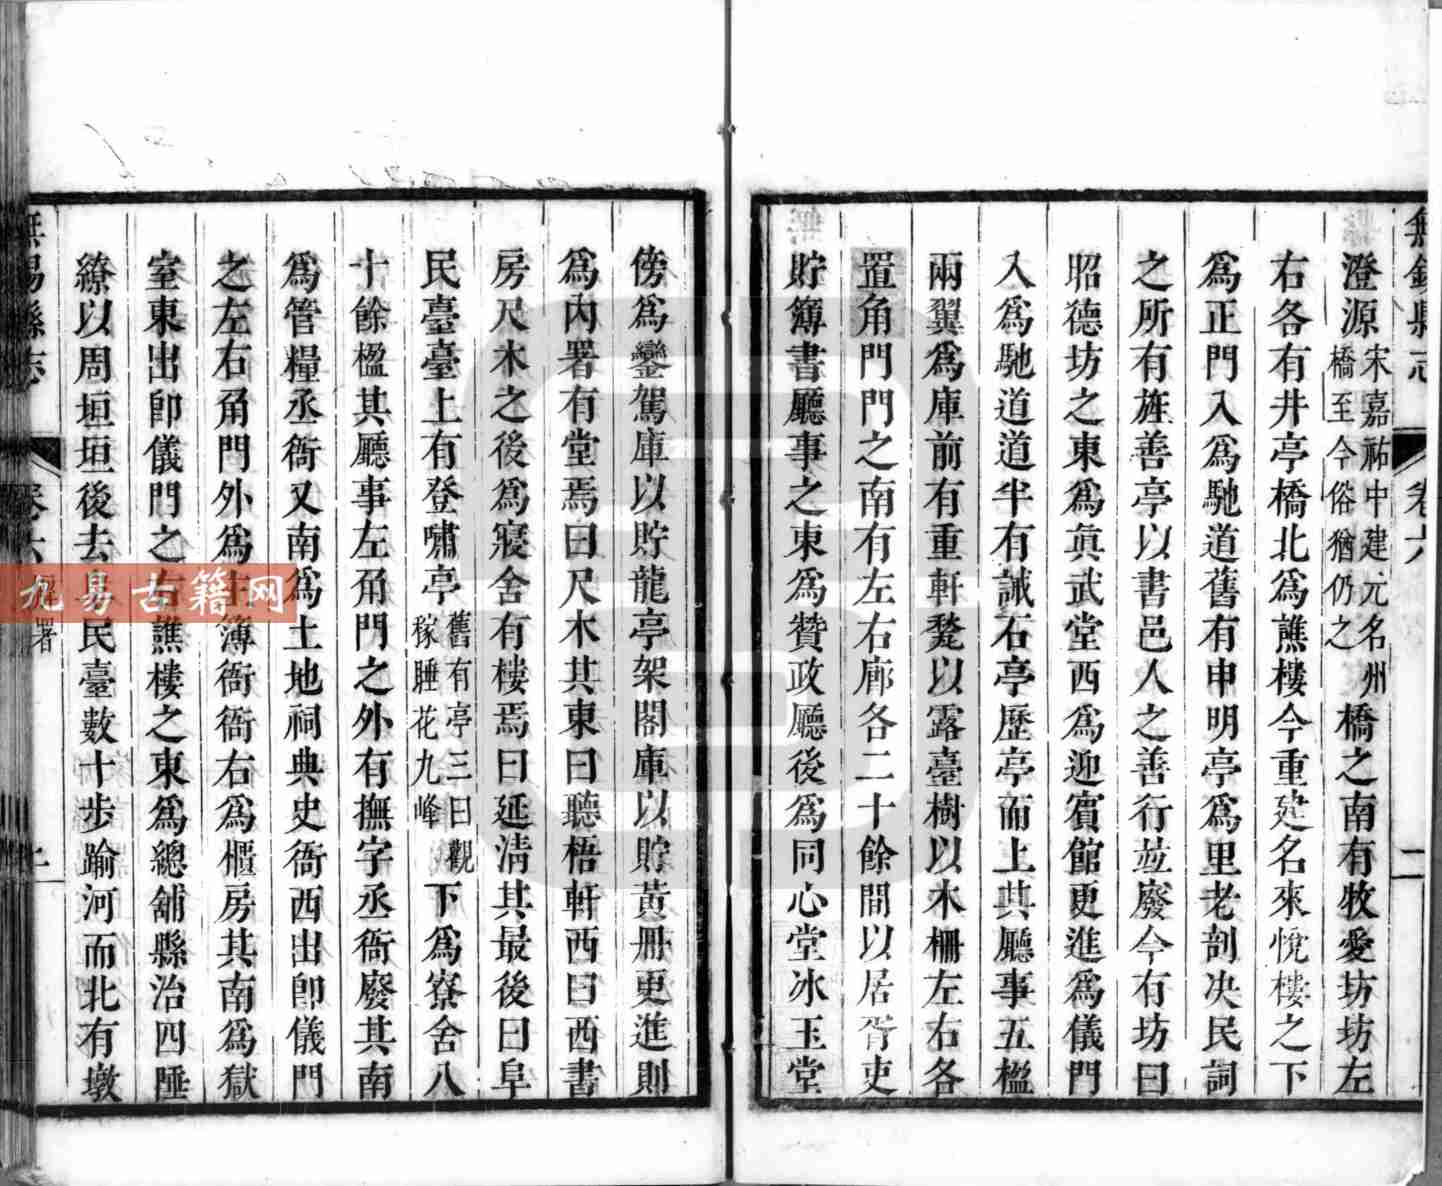 無錫縣志
卷六
二
澄源宋嘉祐中建元名州橋至今俗猶仍之橋之南有牧愛坊坊左
右各有井亭橋北為譙樓今重建名來悅樓樓之下
為正門入為馳道舊有申明亭為里老剖决民詞
之所有旌善亭以書邑人之善行竝廢今有坊曰
昭德坊之東為眞武堂西為迎賓館更進為儀門
入為馳道道半有誡石亭歷亭而上其廳事五楹
兩翼為庫前有重軒甃以露臺樹以木柵左右各
置角門門之南有左右廊各二十餘間以居胥吏
貯簿書廳事之東為贊政廳後為同心堂冰玉堂
傍為鑾駕庫以貯龍亭架閣庫以貯黃冊更進則
為內署有堂焉曰尺木其東曰聽梧軒西曰西書
房尺木之後為寢舍有樓焉曰延淸其最後曰阜
民臺臺上有登嘯亭舊有亭三曰觀稼睡花九峰下為寮舍八
十餘楹其廳事左角門之外有撫字丞衙廢其南
為管糧丞衙又南為土地祠典史衙西出卽儀門
之左右角門外為主簿衙衙右為櫃房其南為獄
室東出卽儀門之右譙樓之東為總舖縣治四陲
繚以周垣垣後去阜民臺數十步踰河而北有墩
無錫縣志
卷六
署
九易古籍网